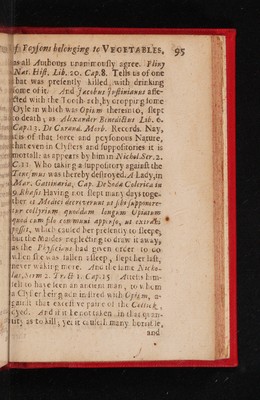 of Poysons belonging to VEGETABLES, 95
as all Authours unanimously agree. Pliny
Nat. Hist. Lib. 20. Cap. 8. Tells us of one
that was presently killed with drinking
some of it. And Jacobus Justinianus affe-
cted with the Tooth-ach, by dropping some
Oyle in which was Opium thereinto, slept
to death, as Alexander Benedictus Lib. 6.
Cap. 13. De Curand. Morb. Records. Nay,
it is of that force and poysonous Nature,
that even in Clysters and suppositories it is
mortall: as appears by him in Nichol. Ser. 2.
C. 12. Who taking a suppository against the
Tenesmus was thereby destroyed. A Lady, in
Mar. Cattinaria, Cap. De Colerica in
9 Rhasis Having not slept many days toge-
ther a Medici decreverunt ut sibi supponere-
tur collyrium quoddam longum Opiatum
quod cum filo communi appenso, ut extrahi
posset, which caused her presently to sleepe,
but the Maiden neglecting to draw it away,
as the Physicians had given order to do
when she was fallen asleep, slept her last,
never waking more. And the same Nicho-
las, Serm 2. Tr. 1. Cap. 15. Attests him-
self to have seen an ancient man, to whom
a Clyster being administred with Opium, a-
gainst that excessive paine of the Collick,
dyed. And if it be not taken in that quan-
tity as to kill, yet it causeth many horrible,
and